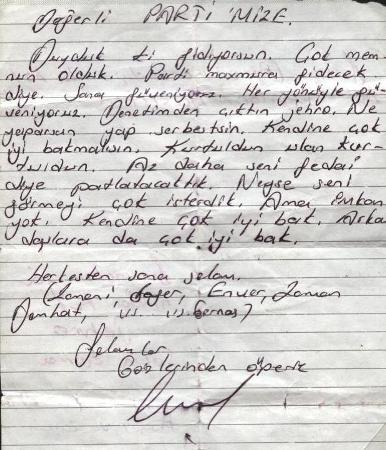 Değerli PARTİ'MİZE.
Duyduk ki gidiyorsun. Çok mem-
nun olduk. Parti maxmura gidecek
diye. Sana güveniyoruz. Her yönüyle gü-
veniyoruz. Denetimden çıktın jehro. Ne
yaparsan yap serbestsin. Kendine çok
iyi bakmalısın. Kurtuldun ulan kur-
tuldun. Az daha seni fedai
diye patlatacaktık. Neyse seni
görmeyi çok isterdik. Ama imkan
yok. Kendine çok iyi bak. Arka
daşlara da çok iyi bak.
Herkesten sana selam.
Enver, Zaman
Selamlar
Gözlerinden öperiz